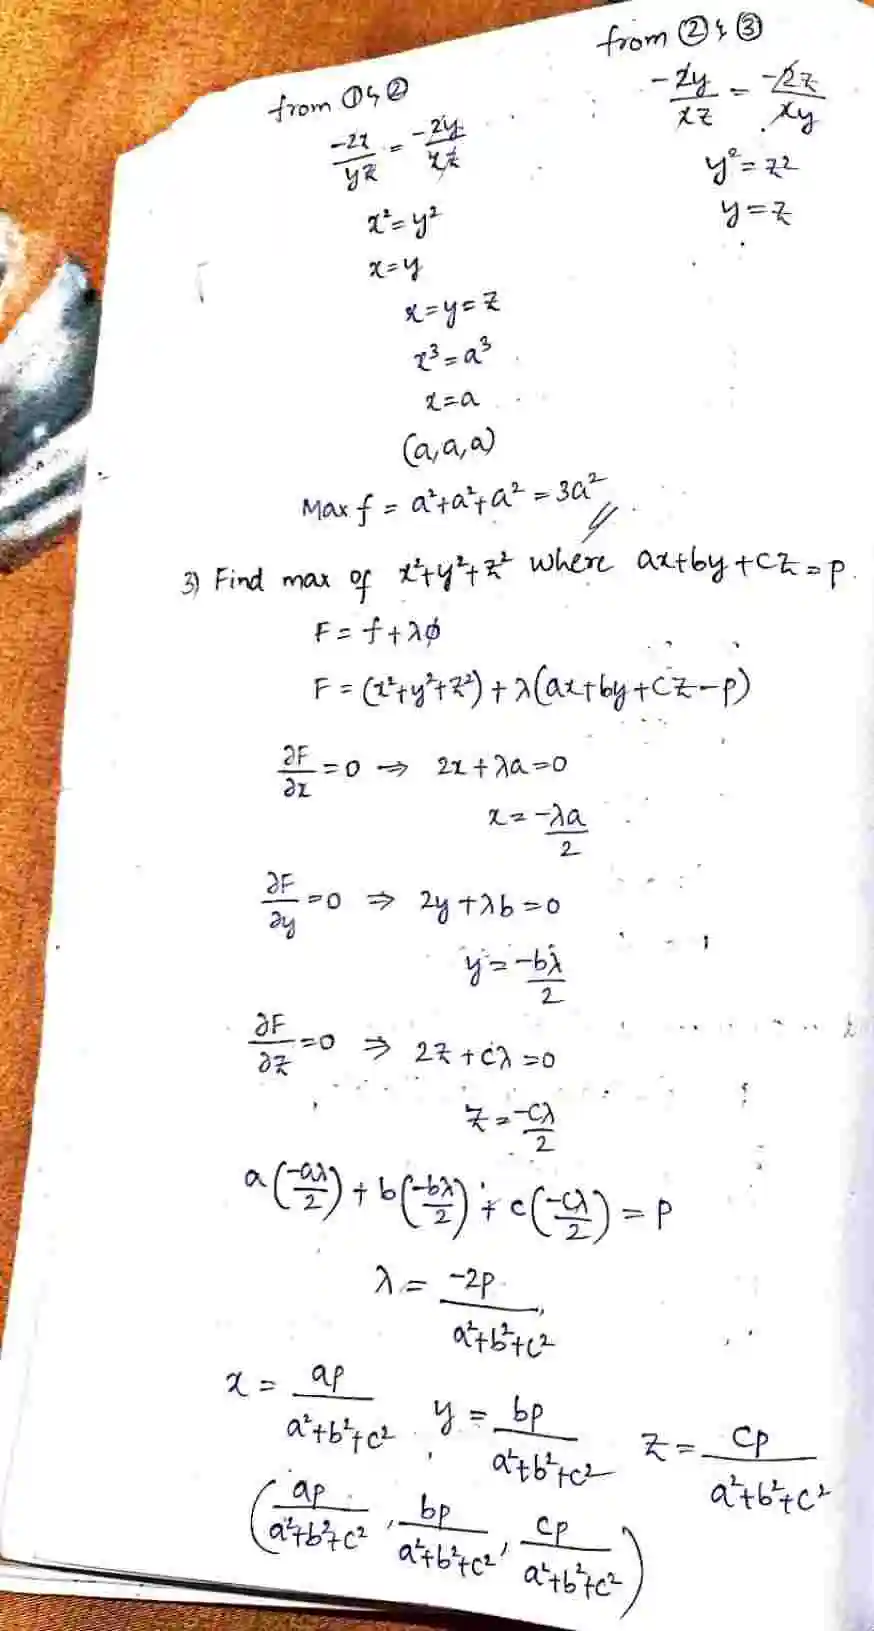 from ① & ②
-2x/yz = -2y/xz
x² = y²
x = y
from ② & ③
-2y/xz = -2z/xy
y² = z²
y = z
x = y = z
x³ = a³
x = a
(a, a, a)
Max f = a² + a² + a² = 3a²
3) Find max of x² + y² + z² where ax + by + cz = p.
F = f + λϕ
F = (x² + y² + z²) + λ(ax + by + cz - p)
∂F/∂x = 0 ⇒ 2x + λa = 0
x = -λa/2
∂F/∂y = 0 ⇒ 2y + λb = 0
y = -bλ/2
∂F/∂z = 0 ⇒ 2z + cλ = 0
z = -cλ/2
a(-aλ/2) + b(-bλ/2) + c(-cλ/2) = p
λ = -2p/(a² + b² + c²)
x = ap/(a² + b² + c²) y = bp/(a² + b² + c²) z = cp/(a² + b² + c²)
(ap/(a² + b² + c²), bp/(a² + b² + c²), cp/(a² + b² + c²))